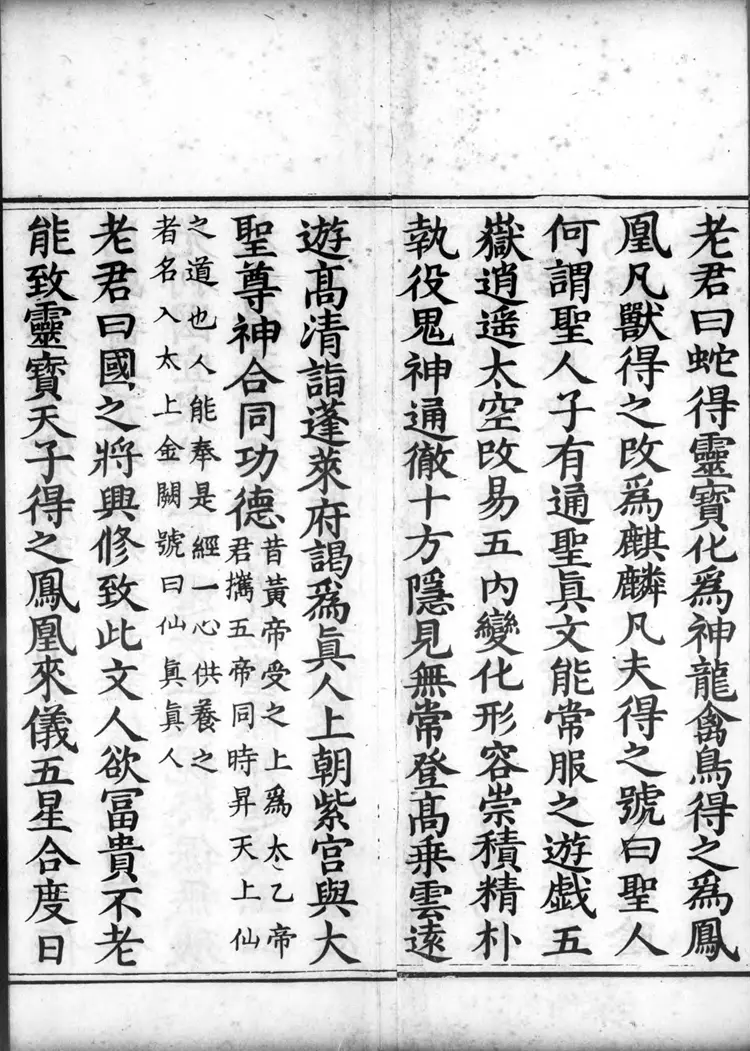 老君曰蛇得靈寳化爲神龍禽鳥得之爲鳳
凰凡獸得之攺爲麒麟凡夫得之號曰聖人
何謂聖人子有通聖眞文能常服之遊戯五
嶽逍遥太空攺易五内變化形容崇積精朴
執役鬼神通徹十方隱見無常登髙乗雲遠
遊髙清詣蓬萊府謁爲眞人上朝紫宫與大
聖尊神合同功德
昔黃帝受之上爲太乙帝
君攜五帝同時昇天上仙
之道也人能奉是經一心供養之
者名入太上金闕號曰仙眞眞人
老君曰國之將興修致此文人欲冨貴不老
能致靈寳天子得之鳳凰來儀五星合度日